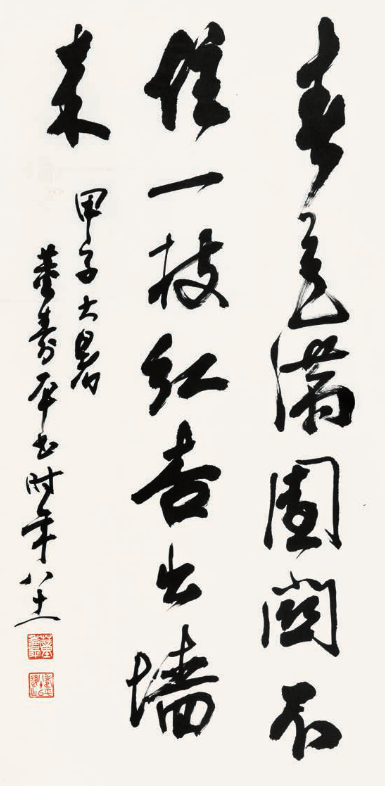 春色满園関不
住一枝红杏出墙
来
甲子大暑
董寿平书时年八十一